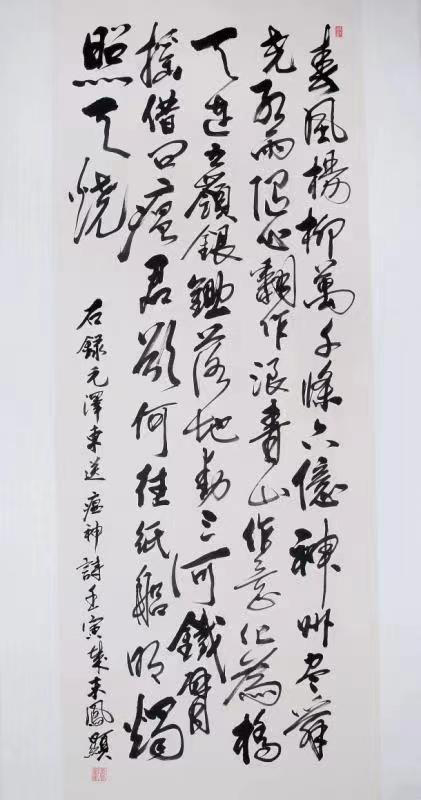 春風楊柳萬千條六億神州尽舜
尧红雨随心翻作浪青山作意化為橋
天连五嶺銀鋤落地動三河鐵臂
摇借问瘟君欲何往紙船明燭
照天燒
右錄毛澤東送瘟神詩壬寅鳳顯